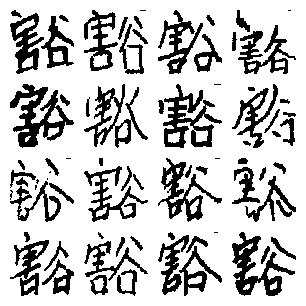 豁豁豁豁
豁豁豁豁
豁豁豁豁
豁豁豁豁